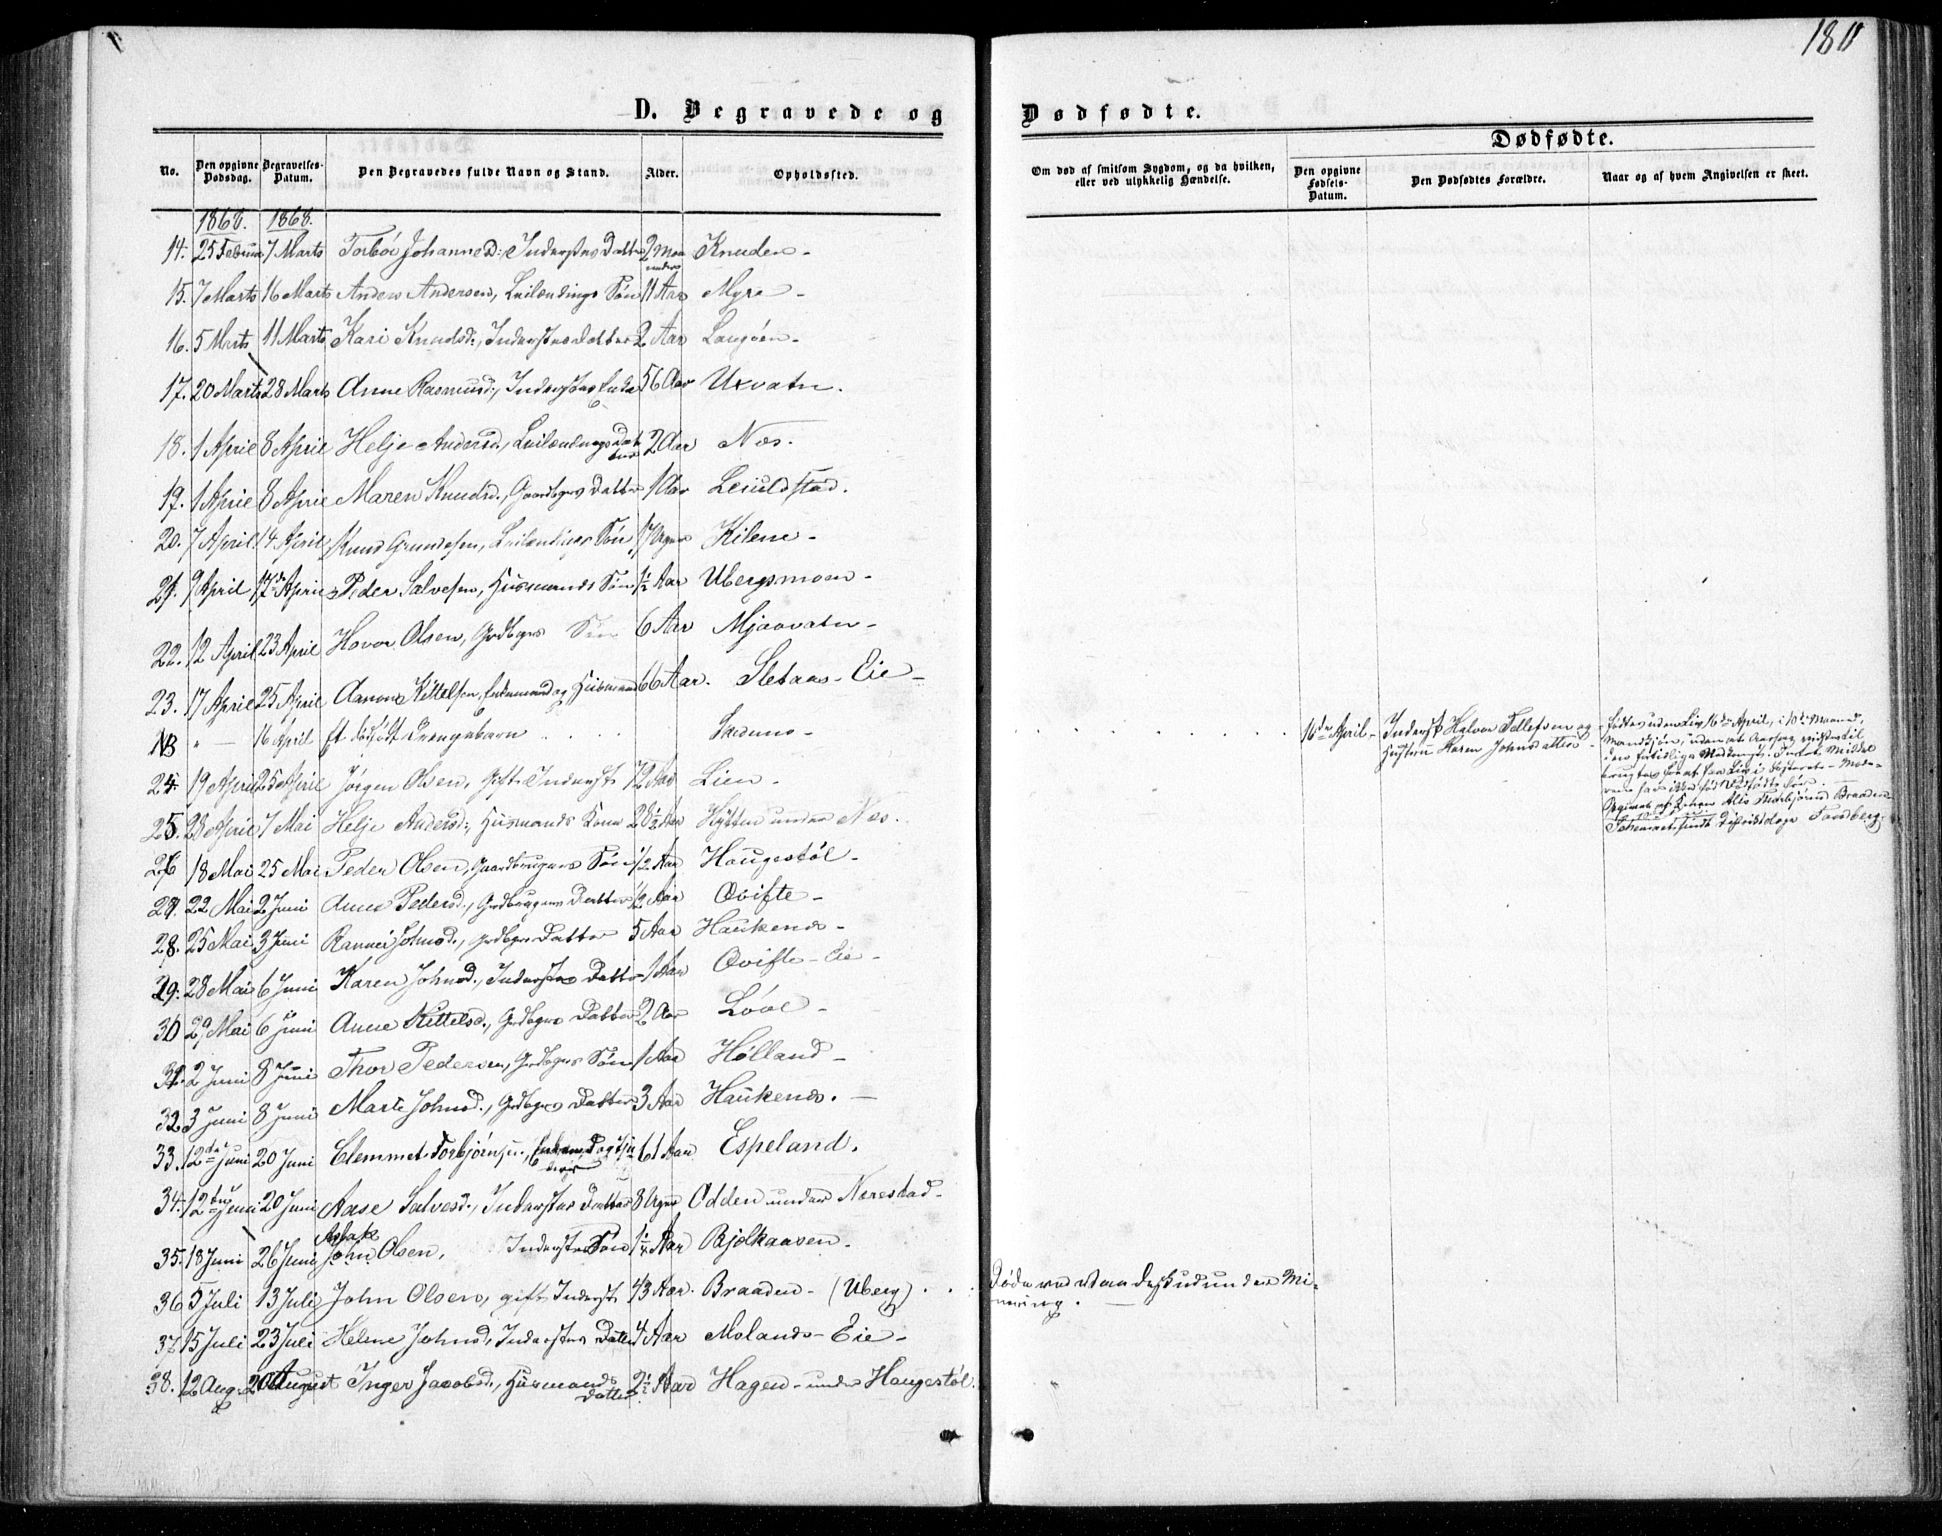 180
D. Begravede og Dødfødte.
Dødfødte.
No. Den opgivne Dødsdag. Begravelses-Datum. Den Begravedes fulde Navn og Stand. Alder. Opholdssted. Om død af smitsom Sygdom, og da hvilken, eller ved ulykkelig Hændelse. Den opgivne Fødsels-Datum. Den Dødfødtes Forældre. Naar og af hvem Angivelsen er skeet.
1868. 1868.
14. 25 Februar 7 Marts Torbør Johannesd: Inderstes Datter 2 Maaneders Knuden -
15. 7 Marts 16 Marts Anders Andersen, Leilændings Søn 11 Aar Myre -
16. 5 Marts 11 Marts Kari Knudsd:, Inderstes Datter 2 Aar Langøen -
17. 20 Marts 28 Marts Anne Rasmusd., Inderstes Enke 56 Aar Uxvatn.
18. 1 April 8 April Helje Andersd., Leilændings Datter 2 Aar Næs.
19. 1 April 8 April Maren Knudsd., Gaardbgrs Datter 1 Aar Leiuldstad.
20. 7 April 14 April Knud Grundesen, Leilændings Søn 17 Uger Kilene -
21. 9 April 17de April Peder Salvesen, Husmands Søn 1/2 Aar Ubergsmoen -
22. 12 April 23 April Hovor Olsen, Grdbgrs Søn 6 Aar Mjaavatn -
23. 17 April 25 April Aanon Kittelsen, Enkemand og Husmand 66 Aar. Sletaas-Eie -
NB " - 16 April Et dødfødt Drengebarn . . . .
16de April - Inderst Halvor Tellefsen og Hustru Karen Johnsdatter -
24. 19 April 25 April Jørgen Olsen, Gift Inderst 72 Aar Lien -
25. 28 April 7 Mai Helje Andersd:, Husmands Kone 28 1/2 Aar Hytten under Næs.
26 18 Mai 25 Mai Peder Olsen, Gaardbrugers Søn 1/2 Aar Haugestøl -
27. 22 Mai 2 Juni Anne Pedersd., Grdbrugers Datter 1/2 Aar Øvifte -
28. 25 Mai 3 Juni Rannei Johnsd., Grdbgrs Datter 5 Aar Haukenæs -
29. 28 Mai 6 Juni Karen Johnsd., Inderstes Datter 1 Aar Øvifte-Eie -
30 29 Mai 6 Juni Anne Kittelsd., Grdbgrs Datter 2 Aar Løvl -
31. 2 Juni 8 Juni Thor Pedersen, Grdbgrs Søn 1 Aar Hølland -
32. 3 Juni 8 Juni Marte Johnsd., Grdbgrs Datter 3 Aar Haukenæs. -
33. 12de Juni 20 Juni Clemmet Torbjørnsen, 61 Aar Espeland.
34. 12te Juni 20 Juni Aase Salvesd., Inderstes Datter 8 Uger Odden under Nærestad -
35. 18 Juni 26 Juni Aslak John Olsen, Inderstes Søn 1 1/4 Aar Bjelkaasen -
36 5 Juli 13 Juli John Olsen, gift Inderst 43 Aar. Braaden - (Uberg) . . Døde ved Vaadeskud under Minering. -
37 15 Juli 23 Juli Helene Johnsd, Inderstes Datter 4 Aar Molands-Eie -
38. 12 Aug. 20 August Inger Jacobsd., Husmands Datter 2 1/2 Aar Hagen - under Haugestøl.